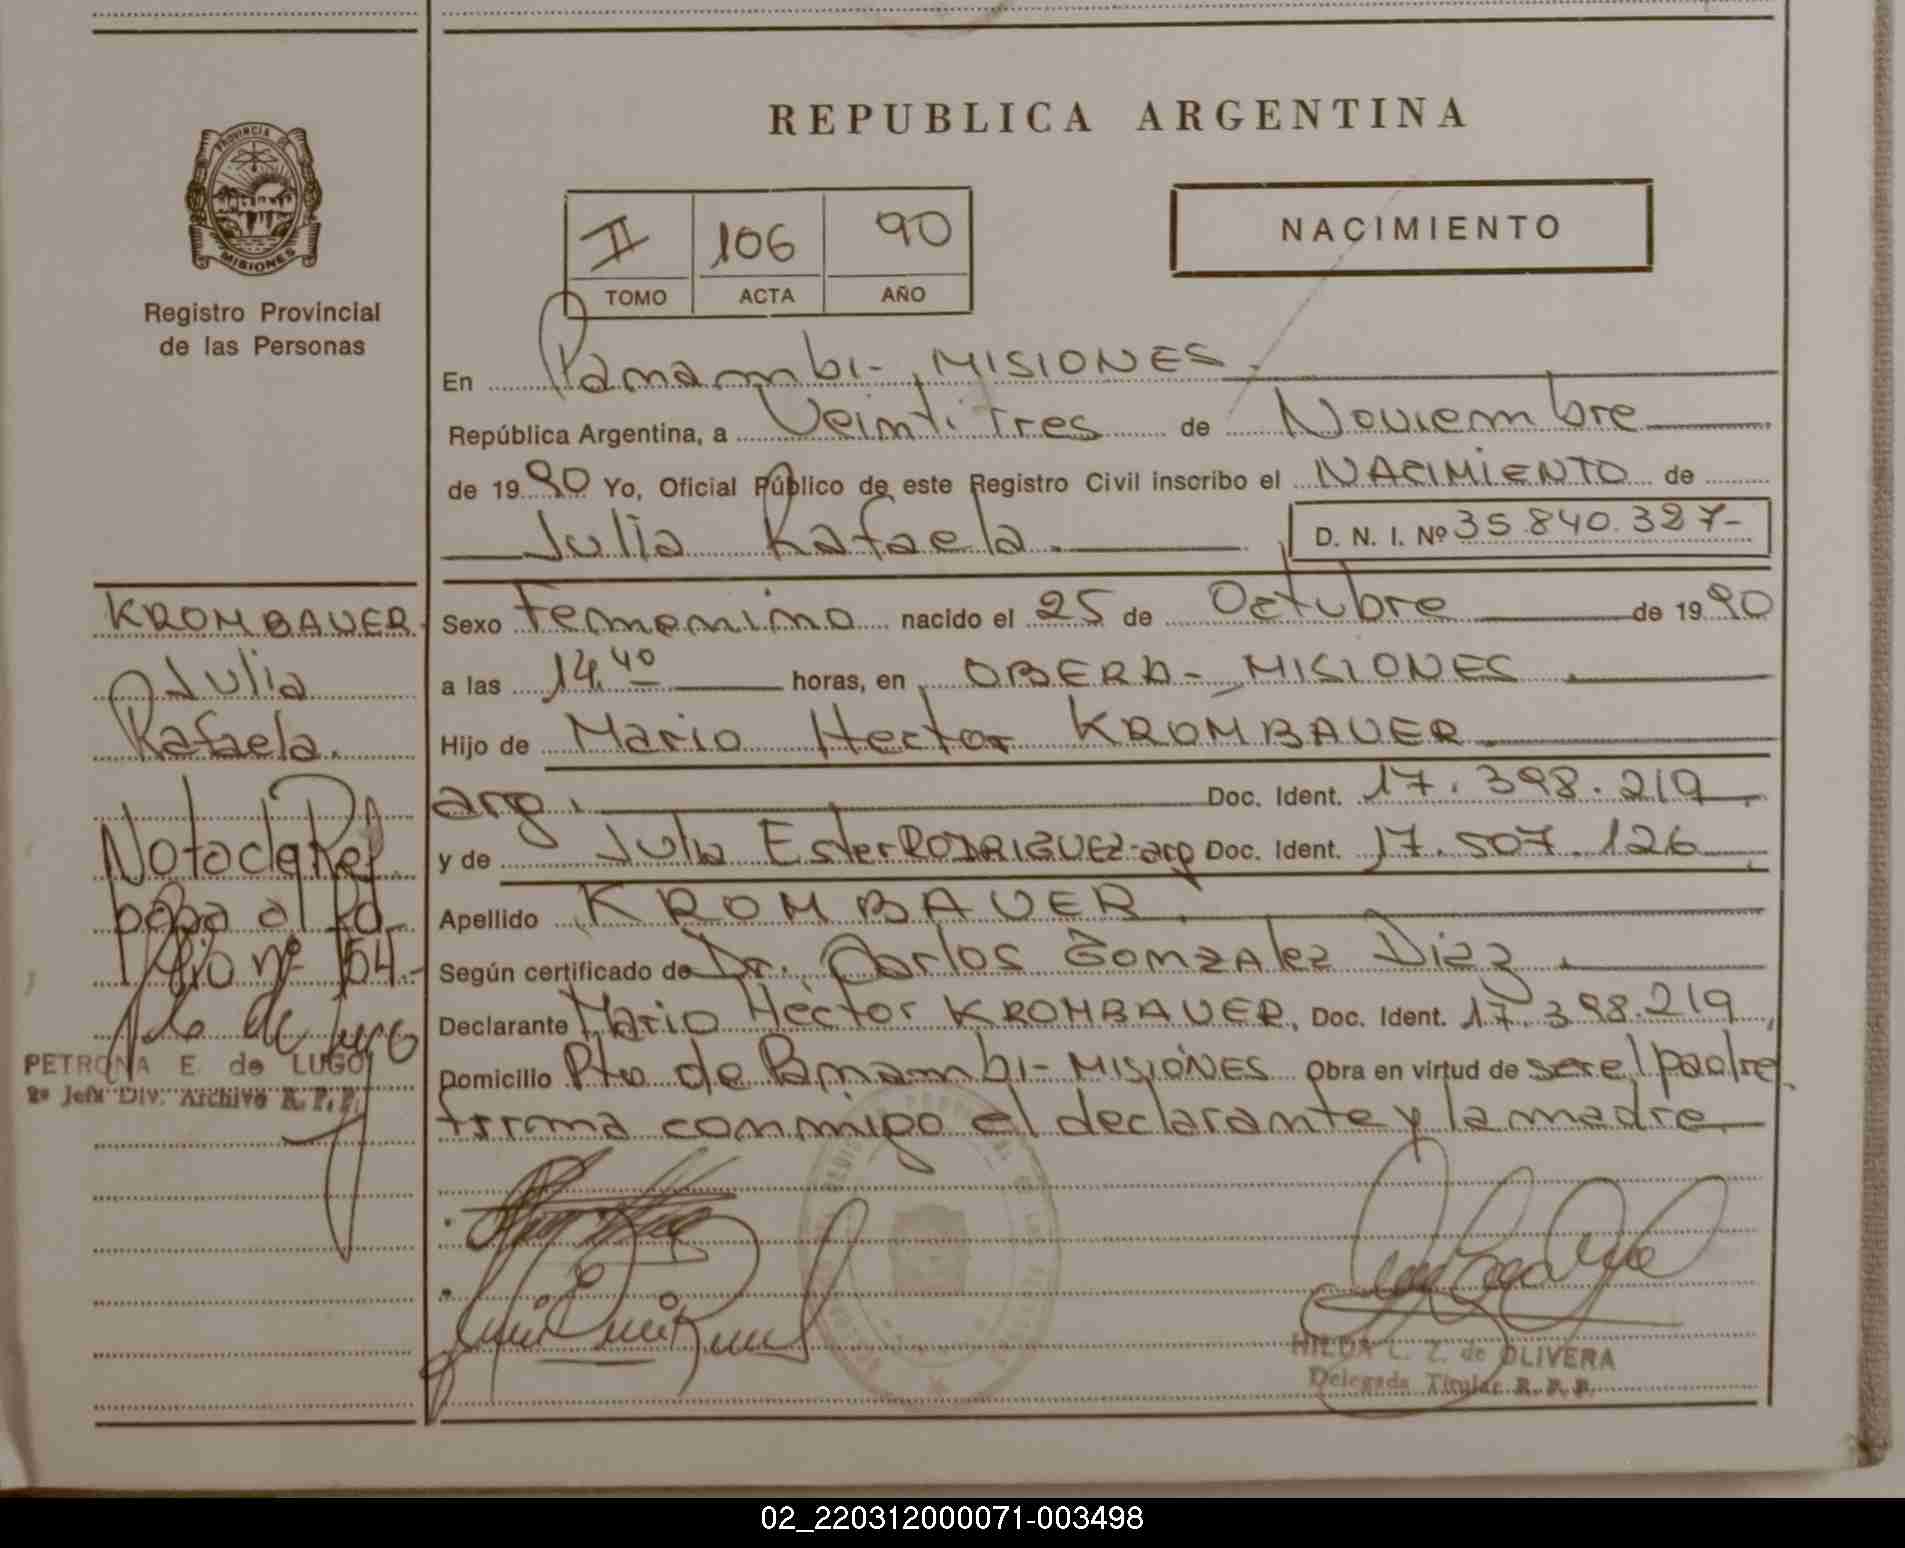 REPUBLICA ARGENTINA
PROVINCIA DE
MISIONES
Registro Provincial
de las Personas
II 106 90
TOMO ACTA AÑO
NACIMIENTO
En Panambi-, MISIONES.
República Argentina, a Veintitres de Noviembre
de 1990 Yo, Oficial Público de este Registro Civil inscribo el NACIMIENTO de
Julia Rafaela.
D. N. I. Nº 35.840.327-
KROMBAUER.
Julia
Rafaela.
Sexo Femenino nacido el 25 de Octubre de 1990
a las 14.40 horas, en OBERA-, MISIONES
Hijo de Mario Hector KROMBAUER.
arg. Doc. Ident. 17.398.219
y de Julia Ester RODRIGUEZ-arg Doc. Ident. 17.507.126
Apellido KROMBAUER.
Según certificado de Dr. Carlos Gonzalez Diaz.
Declarante Mario Héctor KROMBAUER, Doc. Ident. 17.398.219,
Domicilio Pto de Panambi-MISIONES Obra en virtud de ser el padre
firma conmigo el declarante y la madre
Nota de Ref.
nº 154.-
PETRONA E. de LUGO
2ª Jefa Div. Archivo R. P. P.
HILDA L. Z. de OLIVERA
Delegada Titular R. P. P.
02_220312000071-003498